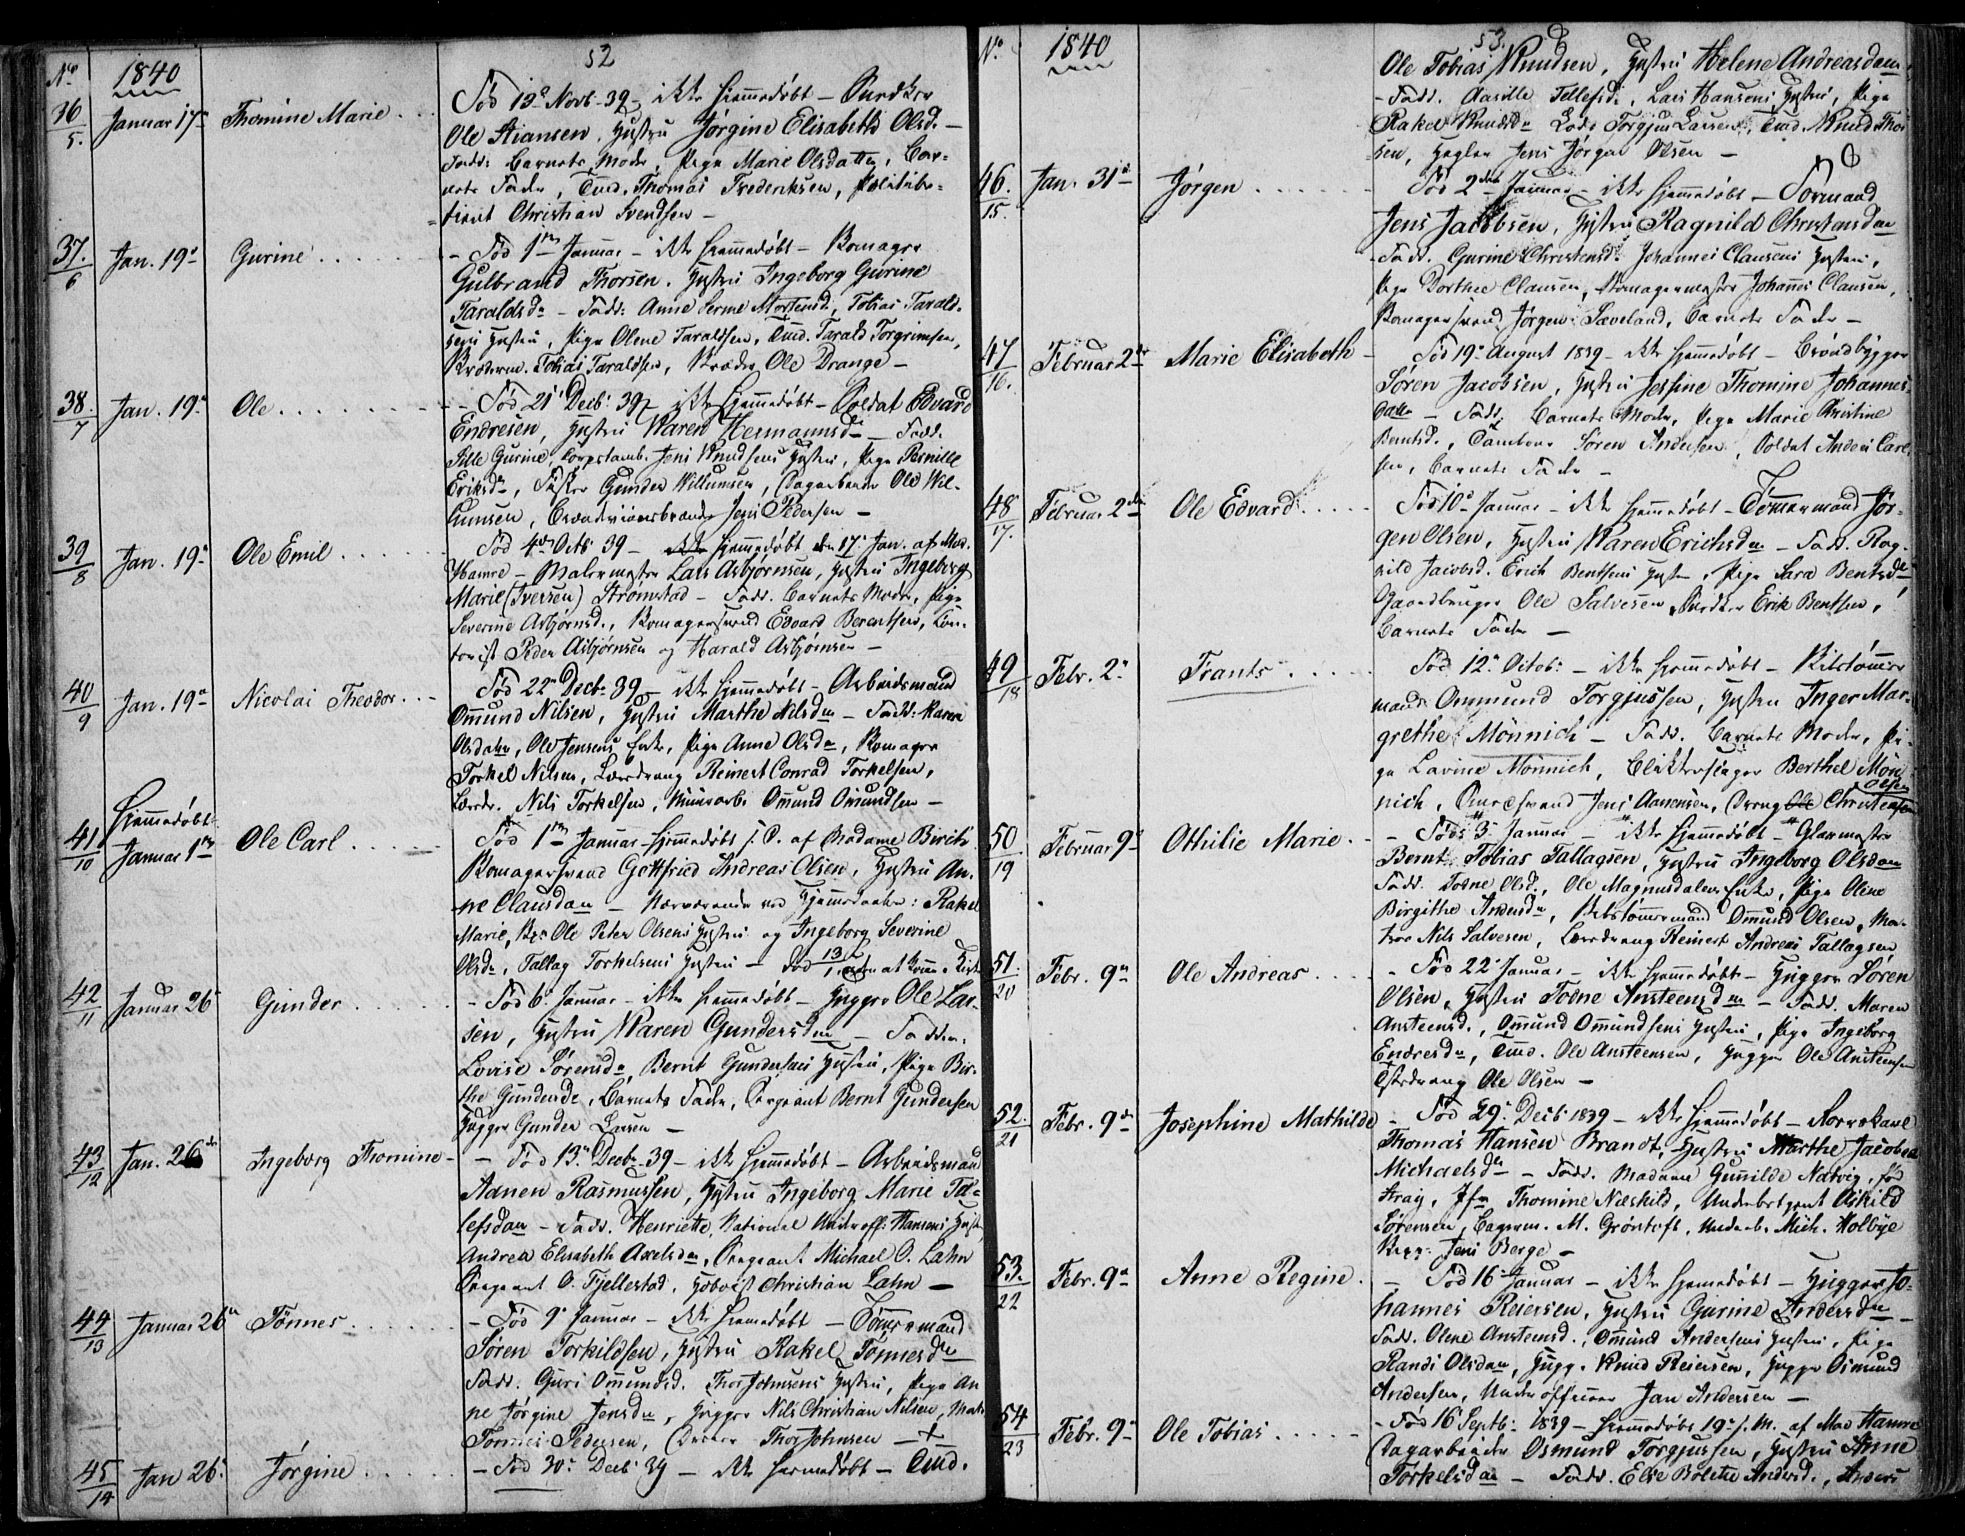 52
No 1840
36/5. Januar 17 Thomine Marie . .
Født 13 Novb. 39 - ikke hjemmedøbt - Snedker
Ole Stiansen, Hustru Jørgine Elisabeth Olsd. -
Fadd: Barnets Moder, Pige Marie Olsdatter, Bar-
nets Fader, Tmd. Thomas Frederiksen, Politibe-
tient Christian Svendsen -
37./6 Jan. 19 Gurine . . . .
- Fød 1 Januar - ikke hjemmedøbt - Komager
Gulbrand Thorsen, Hustru Ingeborg Gurine
Taraldsd - Fadd: Anne Serine Mortensd, Tobias Tarald-
sens Hustru, Pige Olene Taraldsen, Tmd. Tarald Torgrimsen,
Tobias Taraldsen, Ole Drange -
38./7 Jan. 19 Ole . . . . .
- Fød 21 Decb. 39 - ikke hjemmedøbt - Soldat Edvard
Endresen, Hustru Karen Hermannsd - Fadd.
Sille Gurine, Corpstamb. Jens Knudsens Hustru, Pige Pernille
Eriksd, Fisker Gunder Willumsen, Dagarbeider Ole Wil-
lumsen, Jens Pedersen -
39/8 Jan. 19 Ole Emil . . . .
Fød 4 Octb 39 - hjemmedøbt den 17 Jan. af Mad.
Hamre - Malermester Lars Asbjørnsen, Hustru Ingeborg
Marie (Iversen) Strømstad - Fadd. Barnets Moder, Pige
Severine Asbjørnsd., Komagersvend Edvard Berentsen, Con-
torist Peder Asbjørnsen og Harald Asbjørnsen -
40/9 Jan. 19 Nicolai Theodor . .
Fød 22 Decb. 39 - ikke hjemmedøbt - Arbeidsmand
Omund Nilsen, Hustru Marthe Nilsd - Fadd: Karen
Olsdatter, Ole Jensens Enke, Pige Anne Olsd, Komager
Torkel Nilsen, Læredreng Reinert Conrad Torkelsen,
Nils Torkelsen, Omund Omundsen -
41/10 Hjemmedøbt Januar 1 Ole Carl . . . .
Fød 1 Januar hjemmedøbt s. D. af Madame Birch
Komagersvend Gottfried Andreas Olsen, Hustru An-
ne Clausd - Nærværende ved Hjemmedaaben: Rakel
Marie, Ole Peter Olsens Hustru og Ingeborg Severine
Olsd, Tallag Torkelsens Hustru - død 13/1
42/11 Januar 26 Gunder . . . .
- Fød 6 Januar - ikke hjemmedøbt - Hugger Ole Lar-
sen, Hustru Karen Gundersd - Fadd.
Lovise Sørensd, Bernt Gundersens Hustru, Pige Bir-
the Gundersd, Barnets Fader, Sergeant Bernt Gundersen
Hugger Gunder Larsen -
43/12 Jan. 26 Ingeborg Thomine -
- Fød 13 Decb. 39 - ikke hjemmedøbt - Arbeidsmand
Aanen Rasmussen, Hustru Ingeborg Marie Tel-
lefsdatter - Fadd. Henriette, National Underoff. Hansens Hustru
Andrea Elisabeth Axelsd, Sergeant Michael O. Lahn
Sergeant O. Fjellestad, Hoboist Christian Lahn -
44/13 Januar 26 Tønnes . . . .
- Fød 9 Januar - ikke hjemmedøbt - Tømmermand
Søren Torkildsen, Hustru Rakel Tønnesd
Fadd. Guri Omundsd. Thor Johnsens Hustru, Pige An-
ne Jørgine Jensd, Hugger Nils Christian Nilsen, Matr
Tønnes Pedersen, Thor Johnsen -
45/14 Jan 26 Jørgine . . . .
- Fød 30 Decb. 39 - ikke hjemmedøbt - Tmd.
53.
No. 1840
Ole Tobias Knudsen, Hustru Helene Andreasdatter
- Fadd. Aasille Tellefsd., Lars Hansens Hustru, Pige
Rakel Knudsd Lods Torgjus Larsen, Tmd. Knud Thor-
sen, Jens Jørgen Olsen -
46./15. Jan. 31 Jørgen . . . . .
Fød 2 Januar - ikke hjemmedøbt - Formand
Jens Jacobsen, Hustru Ragnild Christensd
- Fadd. Gurine Christensd. Johannes Clausens Hustru,
Pige Dorthee Clausen, Komagermester Johannes Clausen,
Komagersvend Jørgen Sæveland, Barnets Fader -
47/16. Februar 2 Marie Elisabeth -
Fød 19 August 1839 - ikke hjemmedøbt - Brøndbygger
Søren Jacobsen, Hustru Josfine Thomine Johannes-
datter - Fadd. Barnets Moder, Pige Marie Christine
Berntsd., Tambour Søren Andersen, Soldat Anders Carl-
sen, Barnets Fader -
48/17. Februar 2 Ole Edvard . . . .
Fød 10 Januar - ikke hjemmedøbt - Tømmermand Jør-
gen Olsen, Hustru Karen Erichsd - Fadd. Rag-
nild Jacobsd. Erich Bentsens Hustru, Pige Sara Bentsd,
Gaardbruger Ole Salvesen, Snedker Erik Bentsen,
Barnets Fader -
49/18 Febr. 2 Frants . . . .
Fød 12 Octob. - ikke hjemmedøbt - Kilstømmer-
mand Ommund Torgjussen, Hustru Inger Mar-
grethe Mønnich - Fadd. Barnets Moder, Pi-
ge Lavine Mønnich, Blikkenslager Berthel Møn-
nich, Jens Aanensen, Dreng Ole Christensen Olsen
50/19 Februar 9 Othilie Marie . .
- Fød 3 Januar - ikke hjemmedøbt - Glarmester
Bernt Tobias Tallagsen, Hustru Ingeborg Olsdatter
Fadd. Tone Olsd., Ole Magnusdalens Enke, Pige Olene
Birgithe Andersd, Omund Olsen, Ma-
tros Nils Salvesen, Læredreng Reinert Andreas Tallagsen
51/20 Febr. 9 Ole Andreas . . . .
- Fød 22 Januar - ikke hjemmedøbt - Hugger Søren
Olsen, Hustru Tone Ansteensd - Fadd. Maren
Ansteensd., Omund Omundsens Hustru, Pige Ingeborg
Endresd, Tmd. Ole Ansteensen, Hugger Ole Ansteensen
Ole Olsen -
52./21 Febr. 9 Josephine Mathilde
- Fød 29 Decb. 1839 - ikke hjemmedøbt -
Thomas Hansen Brandt, Hustru Marthe Jacobea
Michaelsd - Fadd. Madame Gunilde Natvig, fød
Aray, Jfr Thomine Næskild, Underbetjent Askild
Sørensen, M. Grøntoft, Mich. Holbye
Jens Berge -
53./22 Febr. 9 Anne Regine . .
- Fød 16 Januar - ikke hjemmedøbt - Hugger Jo-
hannes Reiersen, Hustru Gurine Andersd -
Fadd. Olene Ansteensd., Omund Andersens Hustru, Pige
Randi Olsdatter, Hugg. Knud Reiersen, Hugger Osmund
Andersen, Underofficeer Jan Andersen -
54/23 Febr. 9 Ole Tobias . . . . .
- Fød 16 Septb. 1839 - hjemmedøbt 19 s. M. af Mad Hamre
Dagarbeider Osmund Torgjussen, Hustru Anne
Torkelsd - Fadd. Else Bolette Andersd., Anders